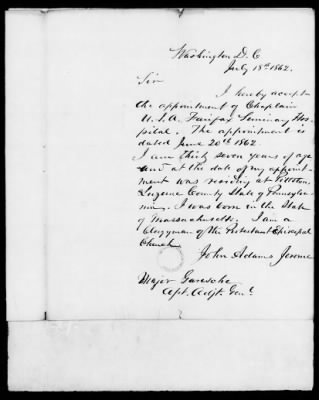 Washington D. C
July 18th 1862.
Sir
I hereby accept
the appointment of Chaplain
U.S.A. Fairfax Seminary Hos-
pital. The appointment is
dated June 20th 1862.
I am thirty seven years of age
and at the date of my appoint-
ment was residing at Pittston,
Luzerne County State of Pennsylva-
nia. I was born in the State
of Massachusetts. I am a
Clergyman of the Protestant Episcopal
Church
John Adams Jerome
Major Garesche
Asst. Adjt. Genl.